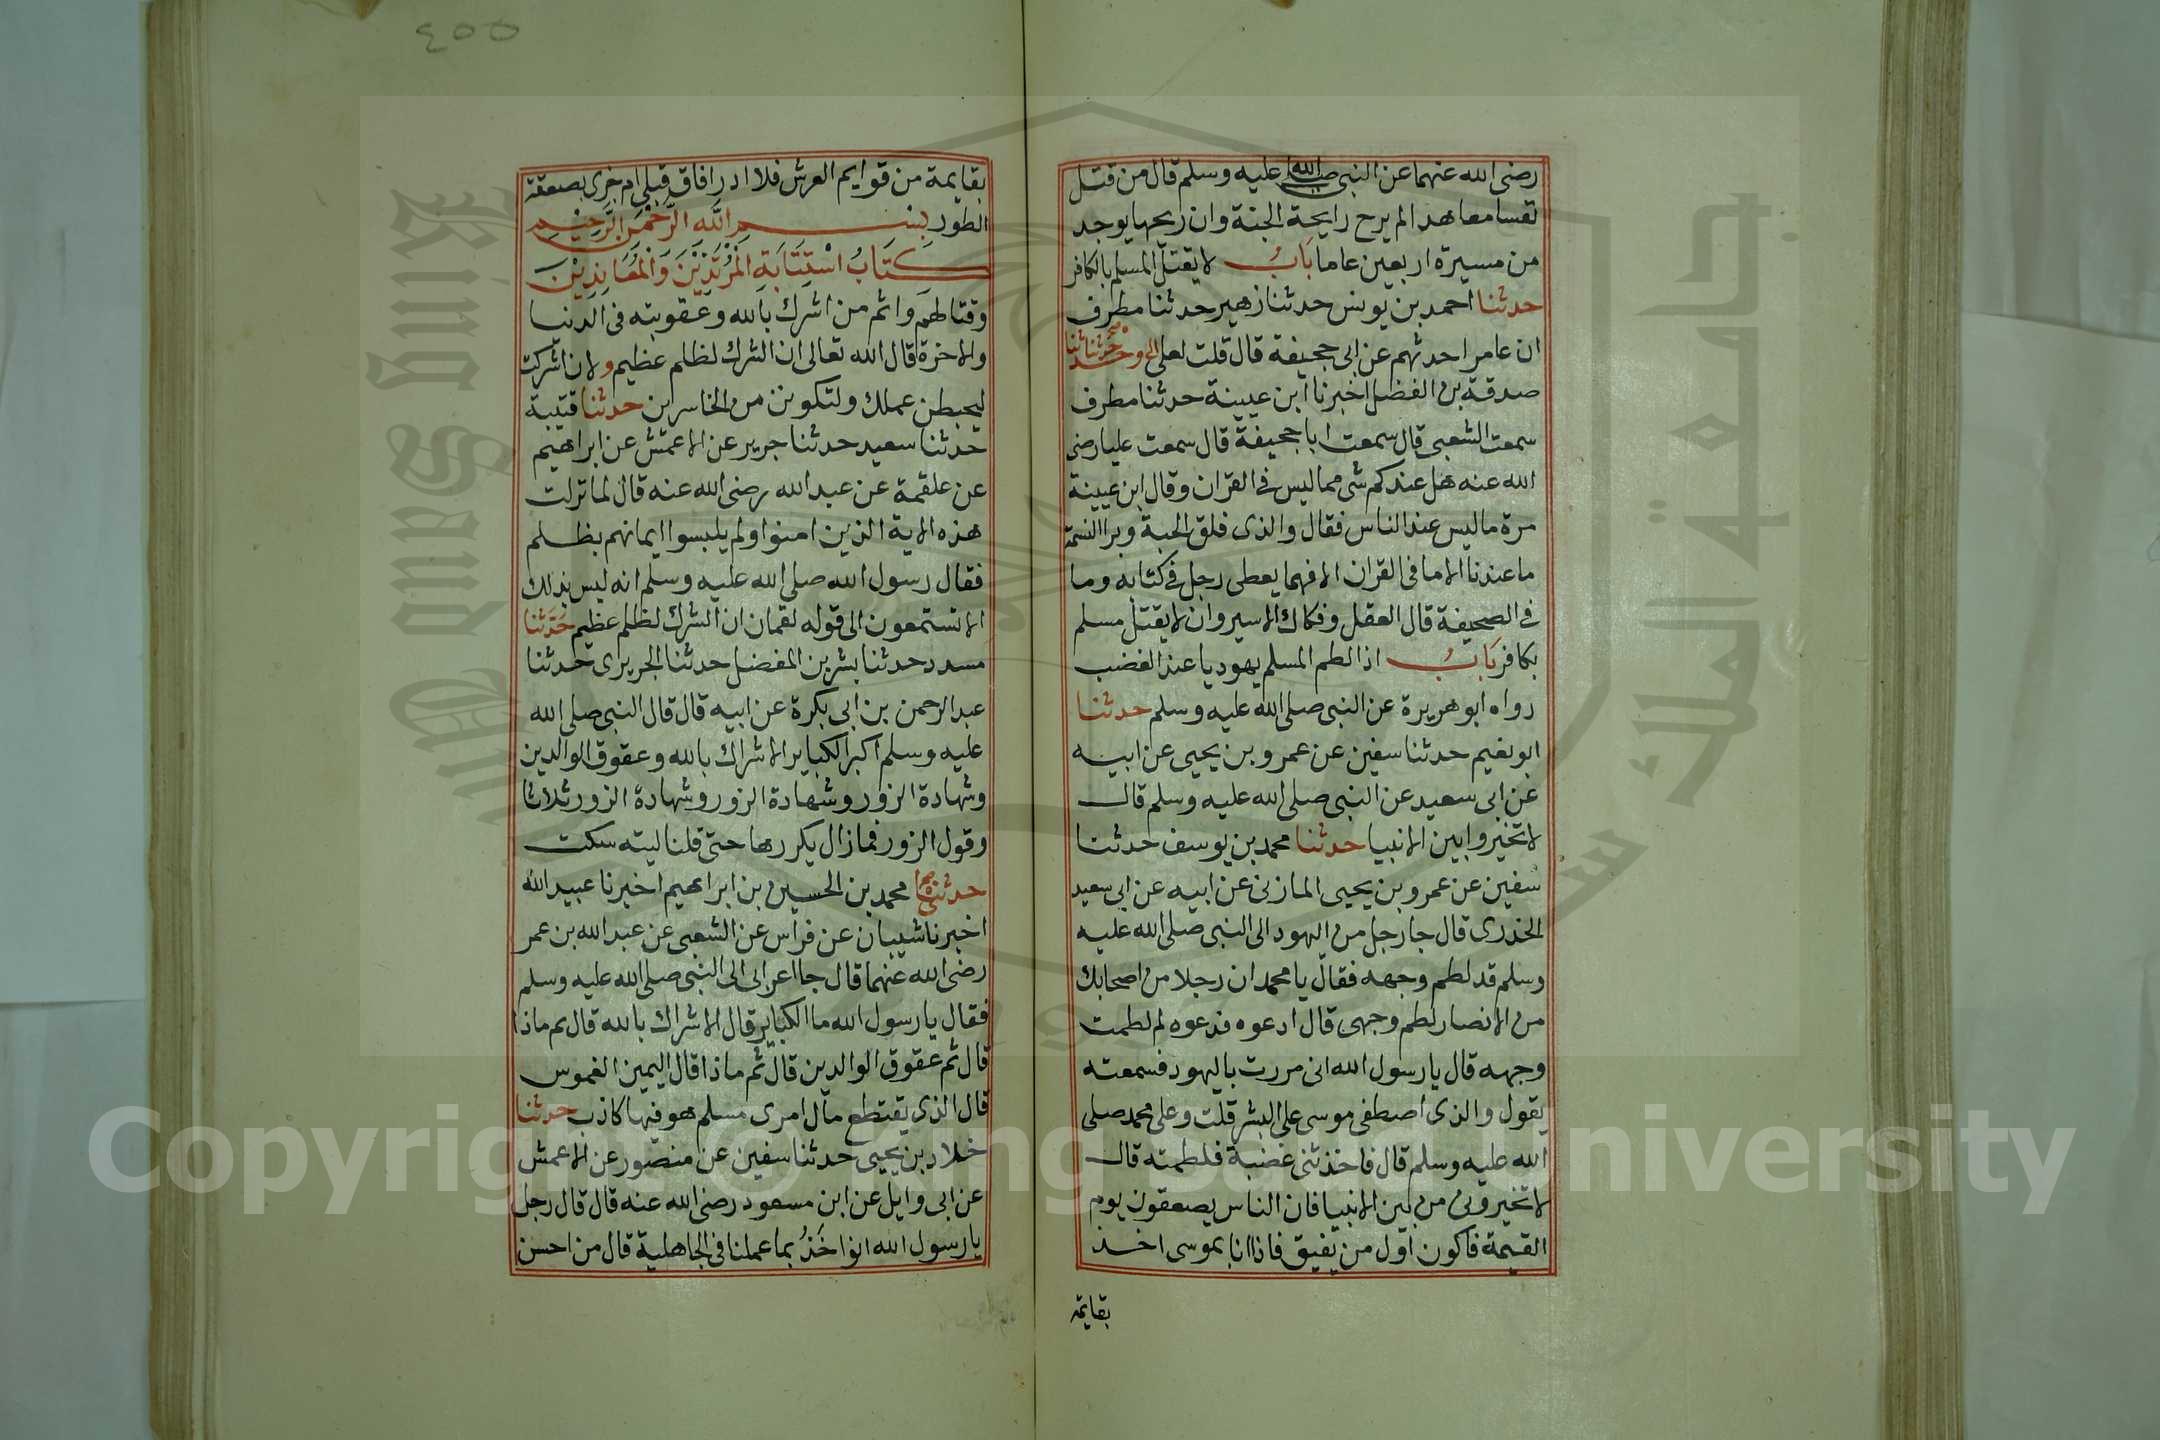 رضى الله عنهما عن النبى صلى الله عليه وسلم قال من قتل
نفسا معاهدا لم يرح رايحة الجنة وان ريحها يوجد
من مسيرة اربعين عاما باب لا يقتل المسلم بالكافر
حدثنا احمد بن يونس حدثنا زهير حدثنا مطرف
ان عامرا حدثهم عن ابى جحيفة قال قلت لعلى وحدثنا
صدقة بن الفضل اخبرنا ابن عيينة حدثنا مطرف
سمعت الشعبى قال سمعت ابا جحيفة قال سمعت عليا رضى
الله عنه هل عندكم شى مما ليس فى القران وقال ابن عيينة
مرة ما ليس عند الناس فقال والذى فلق الحبة وبرا النسمة
ما عندنا الا ما فى القران الا فهما يعطى رجل فى كتابه وما
فى الصحيفة قال العقل وفكاك الاسير وان لا يقتل مسلم
بكافر باب اذا لطم المسلم يهوديا عند الغضب
رواه ابو هريرة عن النبى صلى الله عليه وسلم حدثنا
ابو نعيم حدثنا سفين عن عمرو بن يحيى عن ابيه
عن ابى سعيد عن النبى صلى الله عليه وسلم قال
لا تخيروا بين الانبيا حدثنا محمد بن يوسف حدثنا
سفين عن عمرو بن يحيى المازنى عن ابيه عن ابى سعيد
الخدرى قال جا رجل من اليهود الى النبى صلى الله عليه
وسلم قد لطم وجهه فقال يا محمد ان رجلا من اصحابك
من الانصار لطم وجهى قال ادعوه فدعوه لم لطمت
وجهه قال يا رسول الله انى مررت باليهود فسمعته
يقول والذى اصطفى موسى على البشر قلت وعلى محمد صلى
الله عليه وسلم قال فاخذتنى غضبة فلطمته قال
لا تخيرونى من بين الانبيا فان الناس يصعقون يوم
القيمة فاكون اول من يفيق فاذا انا بموسى اخذ
بقايمة
٤٥٥
بقايمة من قوايم العرش فلا ادرى افاق قبلى ام جزى بصعقة
الطور بسم الله الرحمن الرحيم
كتاب استتابة المرتدين والمعاندين
وقتالهم واثم من اشرك بالله وعقوبته فى الدنيا
والاخرة قال الله تعالى ان الشرك لظلم عظيم ولان اشركت
ليحبطن عملك ولتكونن من الخاسرين حدثنا قتيبة
حدثنا سعيد حدثنا جرير عن الاعمش عن ابراهيم
عن علقمة عن عبد الله رضى الله عنه قال لما نزلت
هذه الاية الذين امنوا ولم يلبسوا ايمانهم بظلم
فقال رسول الله صلى الله عليه وسلم انه ليس بذلك
الا تستمعون الى قوله لقمان ان الشرك لظلم عظيم حدثنا
مسدد حدثنا بشر بن المفضل حدثنا الجريرى حدثنا
عبد الرحمن بن ابى بكرة عن ابيه قال قال النبى صلى الله
عليه وسلم اكبر الكباير الاشراك بالله وعقوق الوالدين
وشهادة الزور وشهادة الزور وشهادة الزور ثلاثا
وقول الزور فما زال يكررها حتى قلنا ليته سكت
حدثنى محمد بن الحسين بن ابراهيم اخبرنا عبيد الله
اخبرنا شيبان عن فراس عن الشعبى عن عبد الله بن عمر
رضى الله عنهما قال جا اعرابى الى النبى صلى الله عليه وسلم
فقال يا رسول الله ما الكباير قال الاشراك بالله قال ثم ماذا
قال ثم عقوق الوالدين قال ثم ماذا قال اليمين الغموس
قال الذى يقتطع مال امرى مسلم هو فيها كاذب حدثنا
خلاد بن يحيى حدثنا سفين عن منصور عن الاعمش
عن ابى وايل عن ابن مسعود رضى الله عنه قال قال رجل
يا رسول الله انواخذ بما عملنا فى الجاهلية قال من احسن
جامعة الملك سعود
King Saud University
Copyright © King Saud University